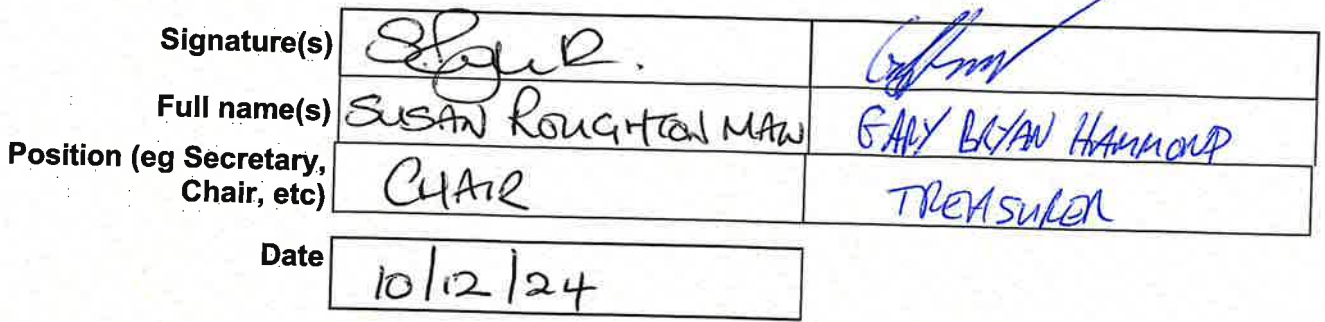 Signature(s)
Full name(s) SUSAN ROUGHTON MAW GARY BRYAN HAMMOND
Position (eg Secretary,
Chair, etc) CHAIR TREASURER
Date 10/12/24